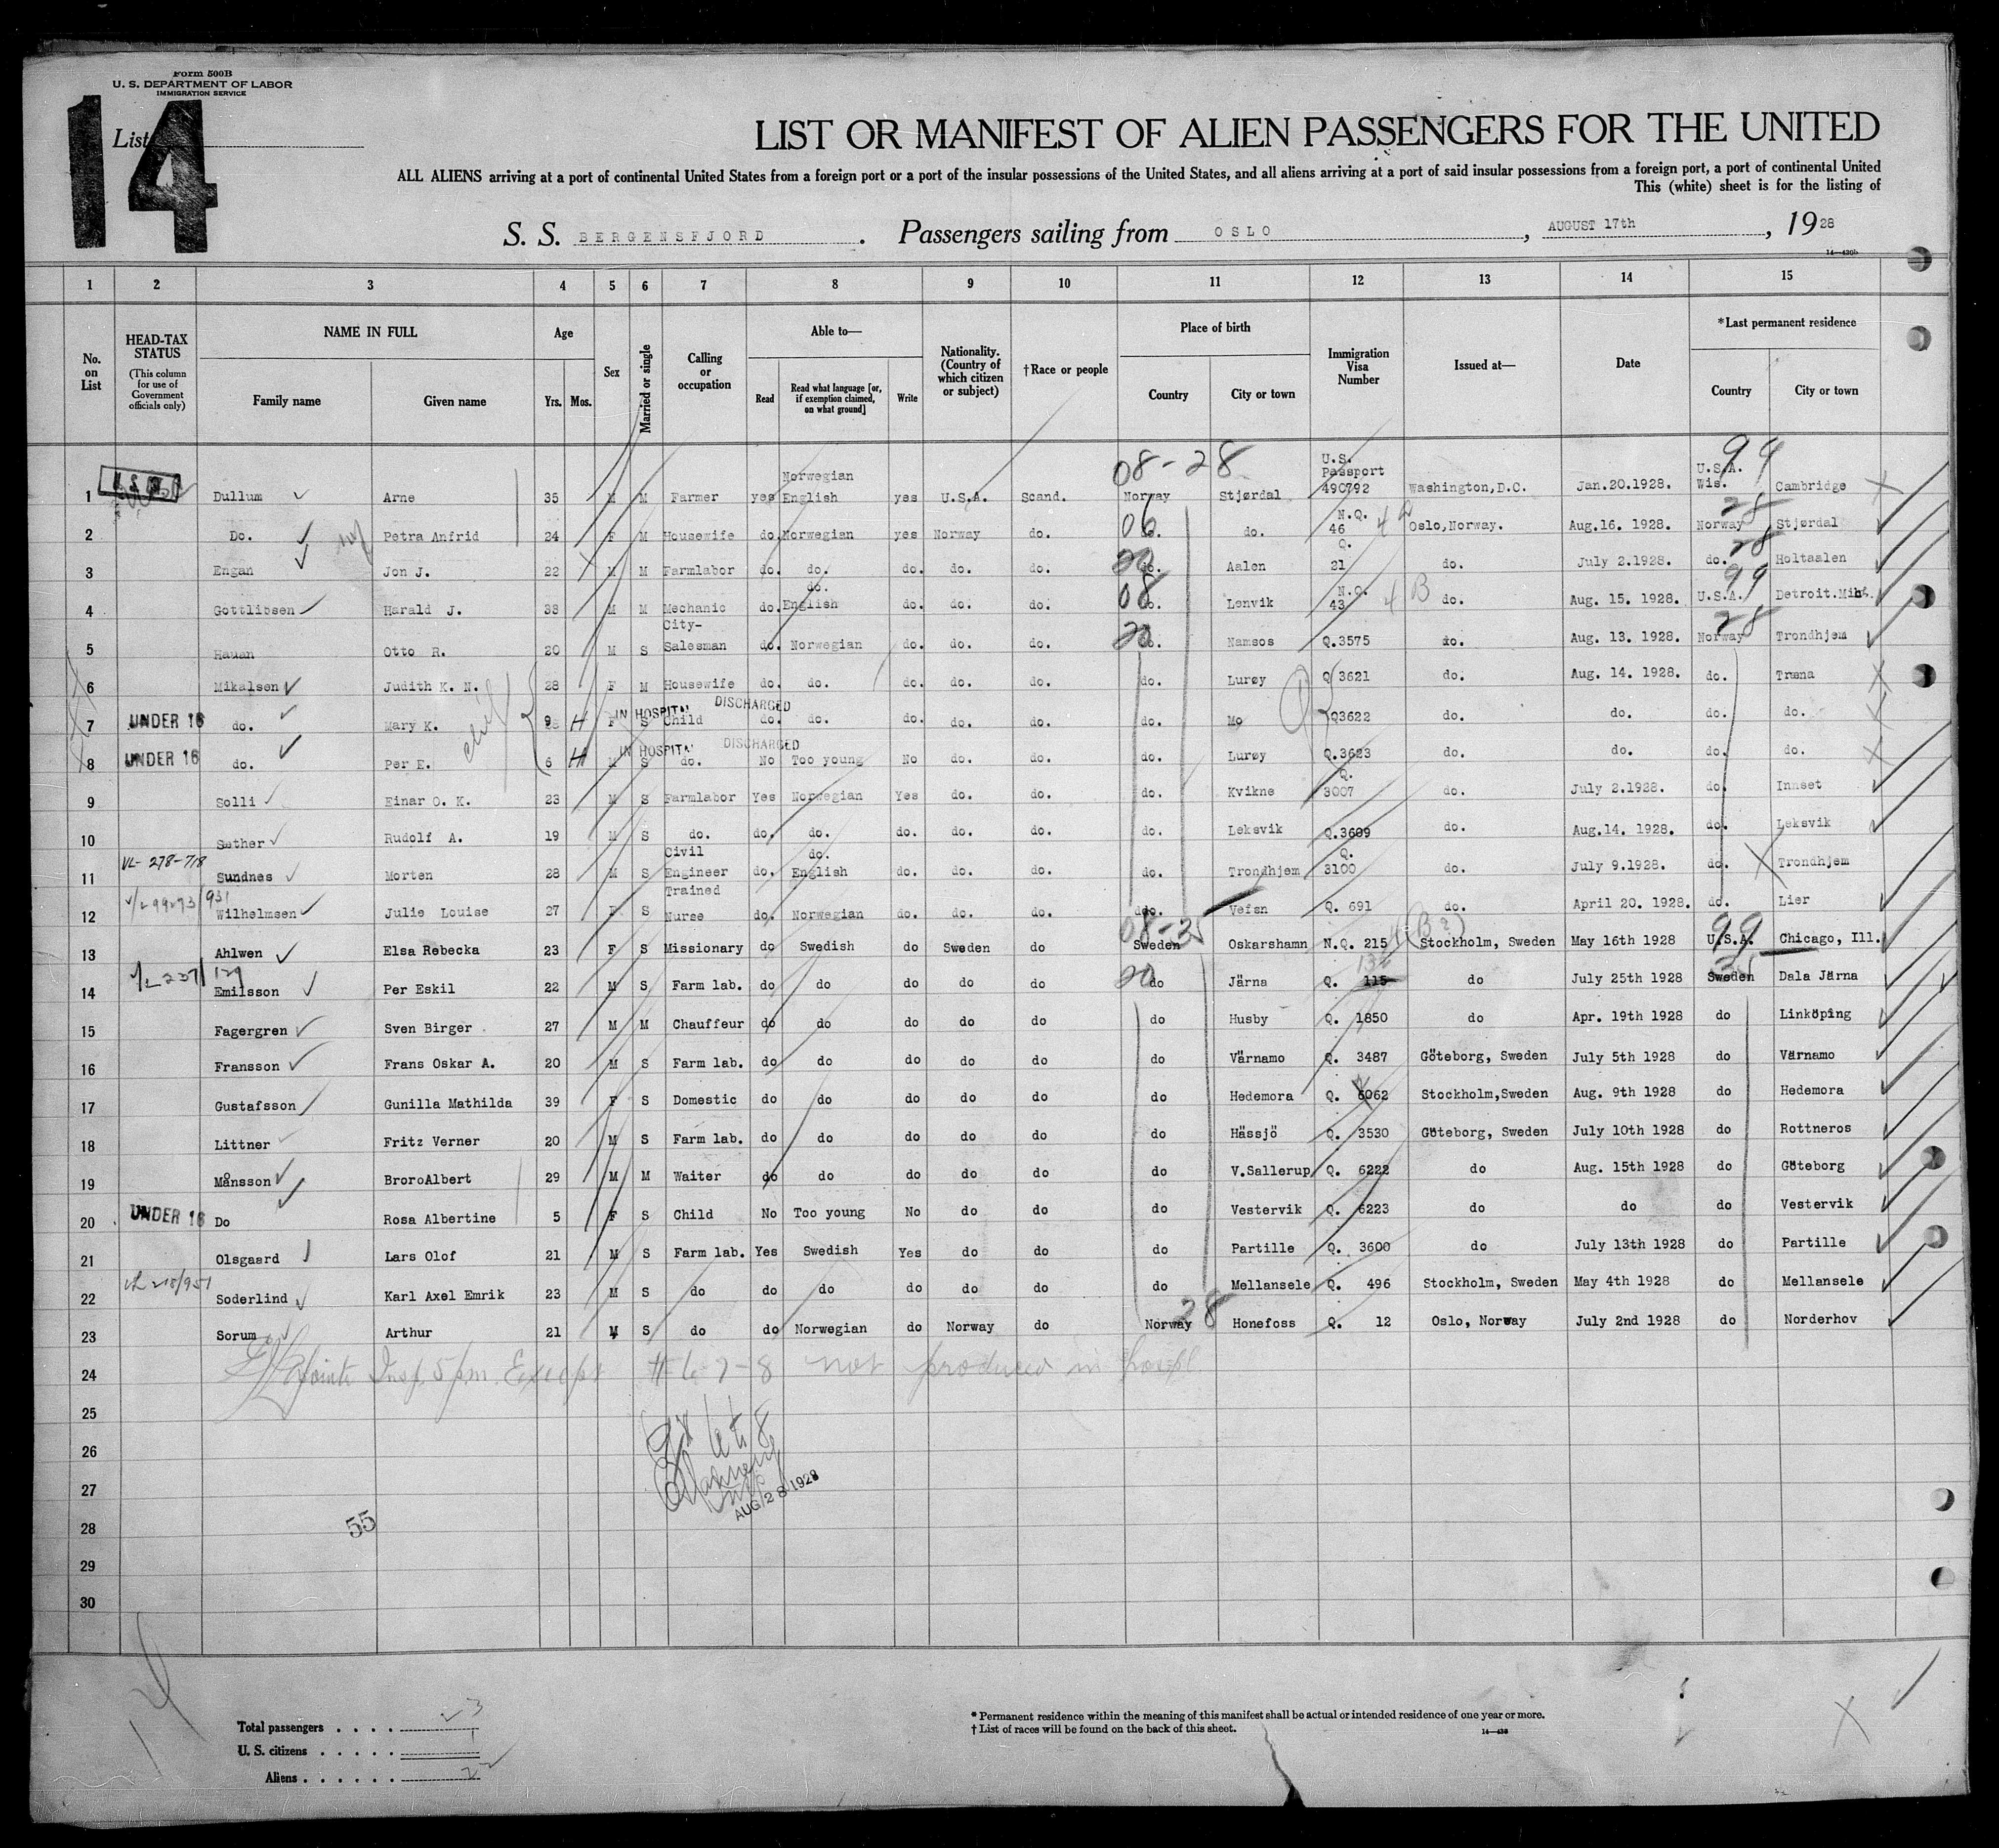 Form 500B
U. S. DEPARTMENT OF LABOR
IMMIGRATION SERVICE
14
List
LIST OR MANIFEST OF ALIEN PASSENGERS FOR THE UNITED
ALL ALIENS arriving at a port of continental United States from a foreign port or a port of the insular possessions of the United States, and all aliens arriving at a port of said insular possessions from a foreign port, a port of continental United
This (white) sheet is for the listing of
S. S. BERGENSFJORD . Passengers sailing from OSLO , AUGUST 17th , 1928
14—430b
1 2 3 4 5 6 7 8 9 10 11 12 13 14 15
No. on List
HEAD-TAX STATUS (This column for use of Government officials only)
NAME IN FULL
Family name Given name
Age
Yrs. Mos.
Sex
Married or single
Calling or occupation
Able to—
Read
Read what language [or, if exemption claimed, on what ground]
Write
Nationality. (Country of which citizen or subject)
†Race or people
Place of birth
Country City or town
Immigration Visa Number
Issued at—
Date
*Last permanent residence
Country City or town
08-28 99
1 Dullum Arne 35 M M Farmer yes Norwegian English yes U.S.A. Scand. Norway Stjørdal U.S. Passport 490792 Washington,D.C. Jan.20.1928. U.S.A. Wis. Cambridge
06 28
2 Do. Petra Anfrid 24 F M Housewife do. Norwegian yes Norway do. do. N.Q. 46 Oslo,Norway. Aug.16. 1928. Norway Stjørdal
28
3 Engan Jon J. 22 M M Farmlabor do. do. do. do. do. do. Aalen Q. 21 do. July 2.1928. do. Holtaalen
08 4 B 99
4 Gottlibsen Harald J. 38 M M Mechanic do. do. English do. do. do. do. Lenvik N.Q. 43 do. Aug. 15. 1928. U.S.A. Detroit.Mich.
28
5 Hauan Otto R. 20 M S City-Salesman do. Norwegian do. do. do. do. Namsos Q.3575 do. Aug. 13. 1928. Norway Trondhjem
6 Mikalsen Judith K. N. 28 F M Housewife do. do. do. do. do. do. Lurøy Q 3621 do. Aug. 14. 1928. do. Træna
IN HOSPITAL DISCHARGED
7 UNDER 16 do. Mary K. 9 H F S Child do. do. do. do. do. do. Mo Q3622 do. do. do. do.
IN HOSPITAL DISCHARGED
8 UNDER 16 do. Per E. 6 H M S do. No Too young No do. do. do. Lurøy Q.3623 do. do. do. do.
9 Solli Einar O. K. 23 M S Farmlabor Yes Norwegian Yes do. do. do. Kvikne Q. 3007 do. July 2.1928. do. Innset
10 Sæther Rudolf A. 19 M S do. do. do. do. do. do. do. Leksvik Q.3609 do. Aug.14. 1928. do. Leksvik
VL-278-718
11 Sundnes Morten 28 M S Civil Engineer do. do. English do. do. do. do. Trondhjem Q. 3100 do. July 9.1928. do. Trondhjem
12 Wilhelmsen Julie Louise 27 F S Trained Nurse do. Norwegian do. do. do. do. Vefsn Q. 691 do. April 20. 1928. do. Lier
08-35 99
13 Ahlwen Elsa Rebecka 23 F S Missionary do Swedish do Sweden do Sweden Oskarshamn N.Q. 215 Stockholm, Sweden May 16th 1928 U.S.A. Chicago, Ill.
14 Emilsson Per Eskil 22 M S Farm lab. do do do do do do Järna Q. 115 do July 25th 1928 Sweden Dala Järna
15 Fagergren Sven Birger 27 M M Chauffeur do do do do do do Husby Q. 1850 do Apr. 19th 1928 do Linköping
16 Fransson Frans Oskar A. 20 M S Farm lab. do do do do do do Värnamo Q. 3487 Göteborg, Sweden July 5th 1928 do Värnamo
17 Gustafsson Gunilla Mathilda 39 F S Domestic do do do do do do Hedemora Q. 6062 Stockholm,Sweden Aug. 9th 1928 do Hedemora
18 Littner Fritz Verner 20 M S Farm lab. do do do do do do Hässjö Q. 3530 Göteborg, Sweden July 10th 1928 do Rottneros
19 Månsson BroroAlbert 29 M M Waiter do do do do do do V.Sallerup Q. 6222 do Aug. 15th 1928 do Göteborg
20 UNDER 16 Do Rosa Albertine 5 F S Child No Too young No do do do Vestervik Q. 6223 do do do Vestervik
21 Olsgaard Lars Olof 21 M S Farm lab. Yes Swedish Yes do do do Partille Q. 3600 do July 13th 1928 do Partille
22 Soderlind Karl Axel Emrik 23 M S do do do do do do do Mellansele Q. 496 Stockholm, Sweden May 4th 1928 do Mellansele
28
23 Sorum Arthur 21 M S do do Norwegian do Norway do Norway Honefoss Q. 12 Oslo, Norway July 2nd 1928 do Norderhov
24 Insp. 5 pm. Except # 6-7-8 not produced in hospl
25
26 6 to 8
27 AUG 28 1928
28 55
29
30
14
Total passengers . . . . 23
U. S. citizens . . . . . 1
Aliens . . . . . . 22
* Permanent residence within the meaning of this manifest shall be actual or intended residence of one year or more.
† List of races will be found on the back of this sheet.
14—430